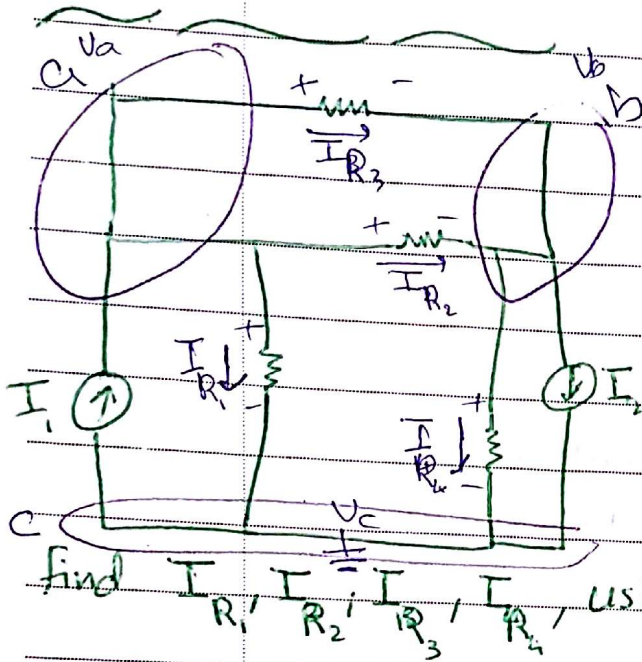 Va
Vb
a
b
+ -
I R3
+ -
I R2
I1
I R1
+
-
I R4
+
-
I2
c
Vc
find I R1, I R2, I R3, I R4, us